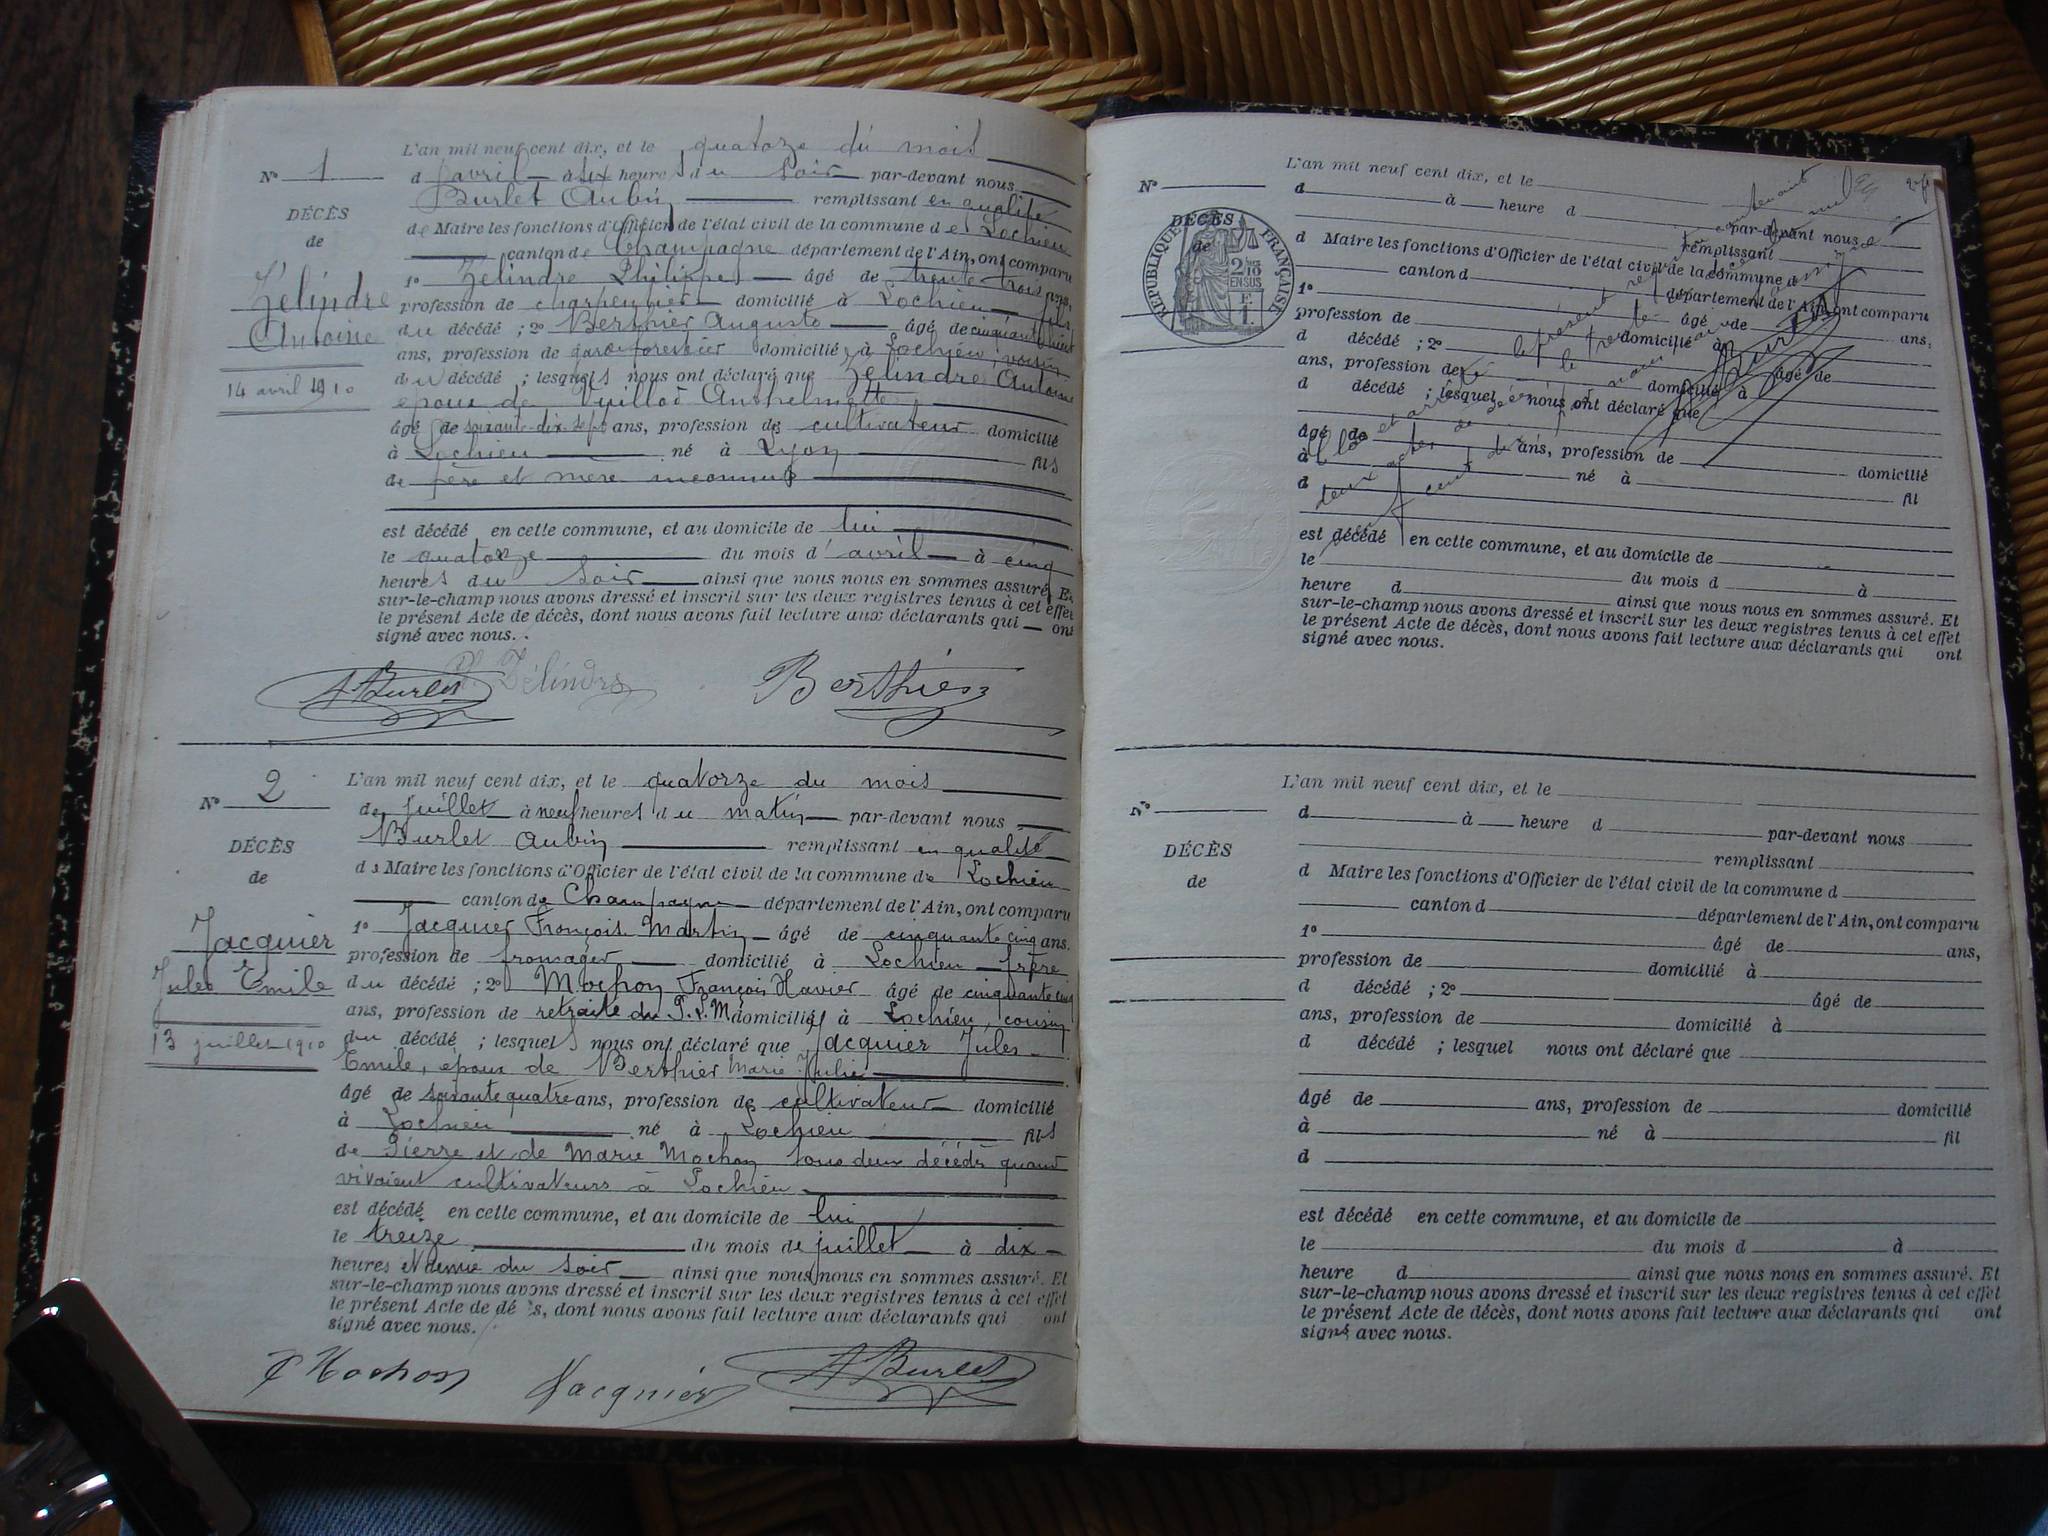 L'an mil neuf cent dix, et le quatorze du mois
N° 1 d'avril à six heures du soir par-devant nous
Burlet Aubin remplissant en qualité
DÉCÈS
de Maire les fonctions d'Officier de l'état civil de la commune de Lochieu
de
canton de Champagne département de l'Ain, ont comparu
1° Zélindre Philippe âgé de trente-trois ans,
Zélindre
profession de charpentier domicilié à Lochieu fils
Antoine
du décédé ; 2° Berthier Auguste âgé de cinquante huit
ans, profession de garde forestier domicilié à Lochieu, voisin
14 avril 1910
du décédé ; lesquels nous ont déclaré que Zélindre Antoine
époux de Vuillod Anthelmette
âgé de soixante-dix-sept ans, profession de cultivateur domicilié
à Lochieu né à Lyon fils
de père et mère inconnus
est décédé en cette commune, et au domicile de lui
le quatorze du mois d'avril à cinq
heures du soir ainsi que nous nous en sommes assuré. Et
sur-le-champ nous avons dressé et inscrit sur les deux registres tenus à cet effet
le présent Acte de décès, dont nous avons fait lecture aux déclarants qui ont
signé avec nous.
A Burlet Ph. Zélindre Berthier
L'an mil neuf cent dix, et le quatorze du mois
N° 2
de juillet à neuf heures du matin par-devant nous
Burlet Aubin remplissant en qualité
DÉCÈS
de Maire les fonctions d'Officier de l'état civil de la commune de Lochieu
de
canton de Champagne département de l'Ain, ont comparu
1° Jacquier François Martin âgé de cinquante cinq ans.
Jacquier
profession de fromager domicilié à Lochieu frère
Jules Emile
du décédé ; 2° Mochon François Xavier âgé de cinquante cinq
ans, profession de retraité du P.L.M domicilié à Lochieu, cousin
13 juillet 1910
du décédé ; lesquels nous ont déclaré que Jacquier Jules
Emile, époux de Berthier Marie Julie
âgé de soixante quatre ans, profession de cultivateur domicilié
à Lochieu né à Lochieu fils
de Pierre et de Marie Mochon tous deux décédés quand
vivaient cultivateurs à Lochieu
est décédé en cette commune, et au domicile de lui
le treize du mois de juillet à dix
heures et demie du soir ainsi que nous nous en sommes assuré. Et
sur-le-champ nous avons dressé et inscrit sur les deux registres tenus à cet effet
le présent Acte de décès, dont nous avons fait lecture aux déclarants qui ont
signé avec nous.
F Mochon Jacquier A Burlet
L'an mil neuf cent dix, et le
N°
d à heure d par-devant nous
DÉCÈS
de
RÉPUBLIQUE FRANÇAISE
2/10 EN SUS
remplissant
d Maire les fonctions d'Officier de l'état civil de la commune d
canton d département de l'Ain, ont comparu
1° âgé de ans,
profession de domicilié à
d décédé ; 2° âgé de
ans, profession de domicilié à
d décédé ; lesquel nous ont déclaré que
âgé de ans, profession de domicilié
à né à fil
d
Clos et arrêté le présent registre contenant
deux actes de décès le trente
cent dix
Burlet
est décédé en cette commune, et au domicile de
le du mois d à
heure d ainsi que nous nous en sommes assuré. Et
sur-le-champ nous avons dressé et inscrit sur les deux registres tenus à cet effet
le présent Acte de décès, dont nous avons fait lecture aux déclarants qui ont
signé avec nous.
L'an mil neuf cent dix, et le
N°
d à heure d par-devant nous
remplissant
DÉCÈS
d Maire les fonctions d'Officier de l'état civil de la commune d
de
canton d département de l'Ain, ont comparu
1° âgé de ans,
profession de domicilié à
d décédé ; 2° âgé de
ans, profession de domicilié à
d décédé ; lesquel nous ont déclaré que
âgé de ans, profession de domicilié
à né à fil
d
est décédé en cette commune, et au domicile de
le du mois d à
heure d ainsi que nous nous en sommes assuré. Et
sur-le-champ nous avons dressé et inscrit sur les deux registres tenus à cet effet
le présent Acte de décès, dont nous avons fait lecture aux déclarants qui ont
signé avec nous.